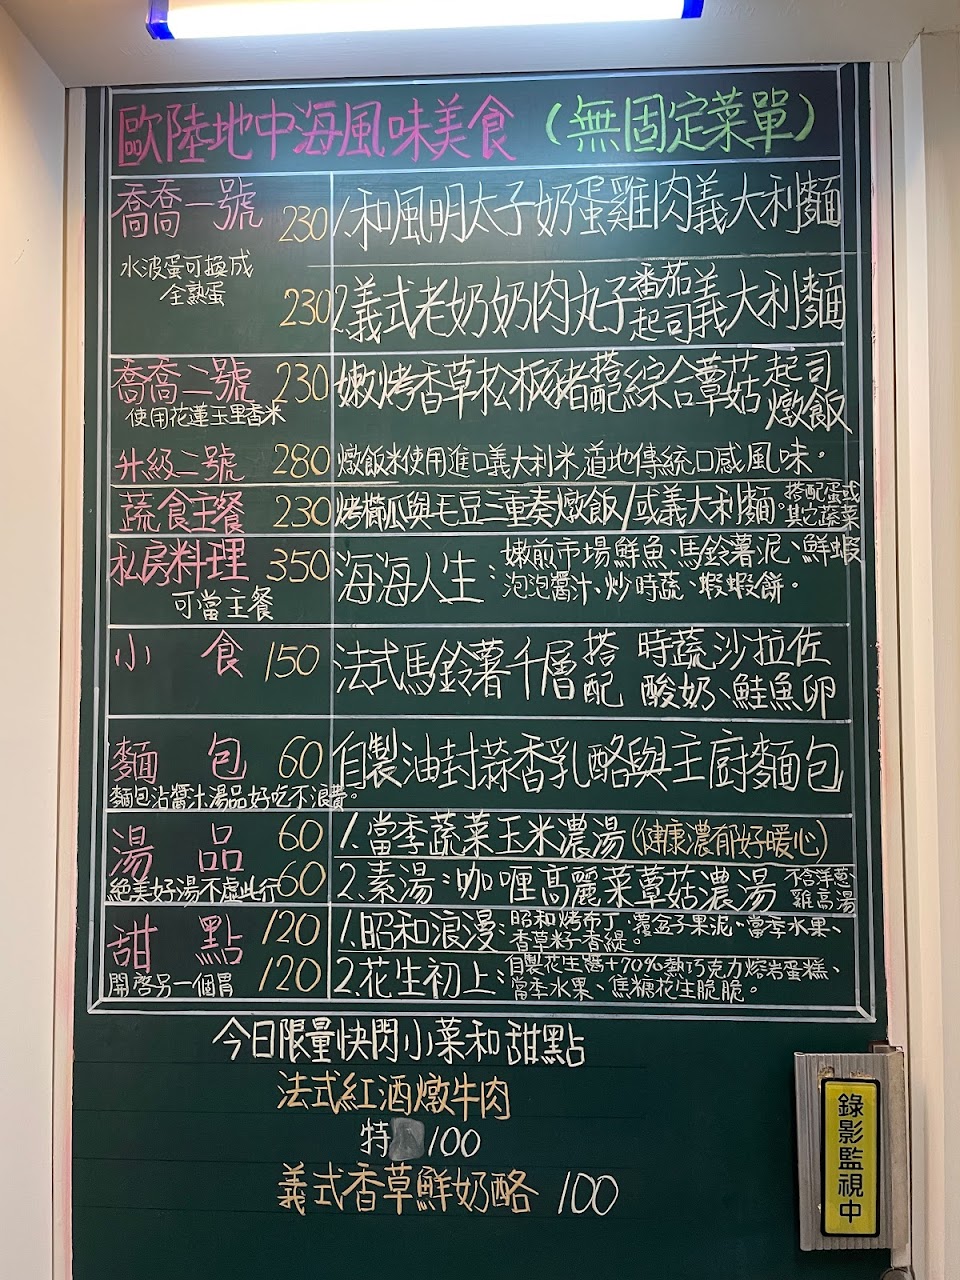 歐陸地中海風味美食（無固定菜單）
喬喬一號 230 1.和風明太子奶蛋雞肉義大利麵
水波蛋可換成
全熟蛋
230 2.義式老奶奶肉丸子番茄起司義大利麵
喬喬二號 230 嫩烤香草松板豬搭配綜合蕈菇起司燉飯
使用花蓮玉里香米
升級二號 280 燉飯米使用進口義大利米道地傳統口感風味。
蔬食主餐 230 烤櫛瓜與毛豆三重奏燉飯/或義大利麵。搭配蛋或其它蔬菜
私房料理 350 海海人生：嫩煎市場鮮魚、馬鈴薯泥、鮮蝦
可當主餐
泡泡醬汁、炒時蔬、蝦蝦餅。
小食 150 法式馬鈴薯千層搭配 時蔬沙拉佐
酸奶、鮭魚卵
麵包 60 自製油封蒜香乳酪與主廚麵包
麵包沾醬汁湯品好吃不浪費。
湯品 60 1.當季蔬菜玉米濃湯(健康濃郁好暖心)
絕美好湯不虛此行
60 2.素湯：咖哩高麗菜蕈菇濃湯 不含洋蔥
雞高湯
甜點 120 1.昭和浪漫：昭和烤布丁、覆盆子果泥、當季水果、
香草籽香緹。
開啓另一個胃
120 2.花生初上：自製花生醬+70%熱巧克力熔岩蛋糕、
當季水果、焦糖花生脆脆。
今日限量快閃小菜和甜點
法式紅酒燉牛肉
特 100
義式香草鮮奶酪 100
錄影監視中